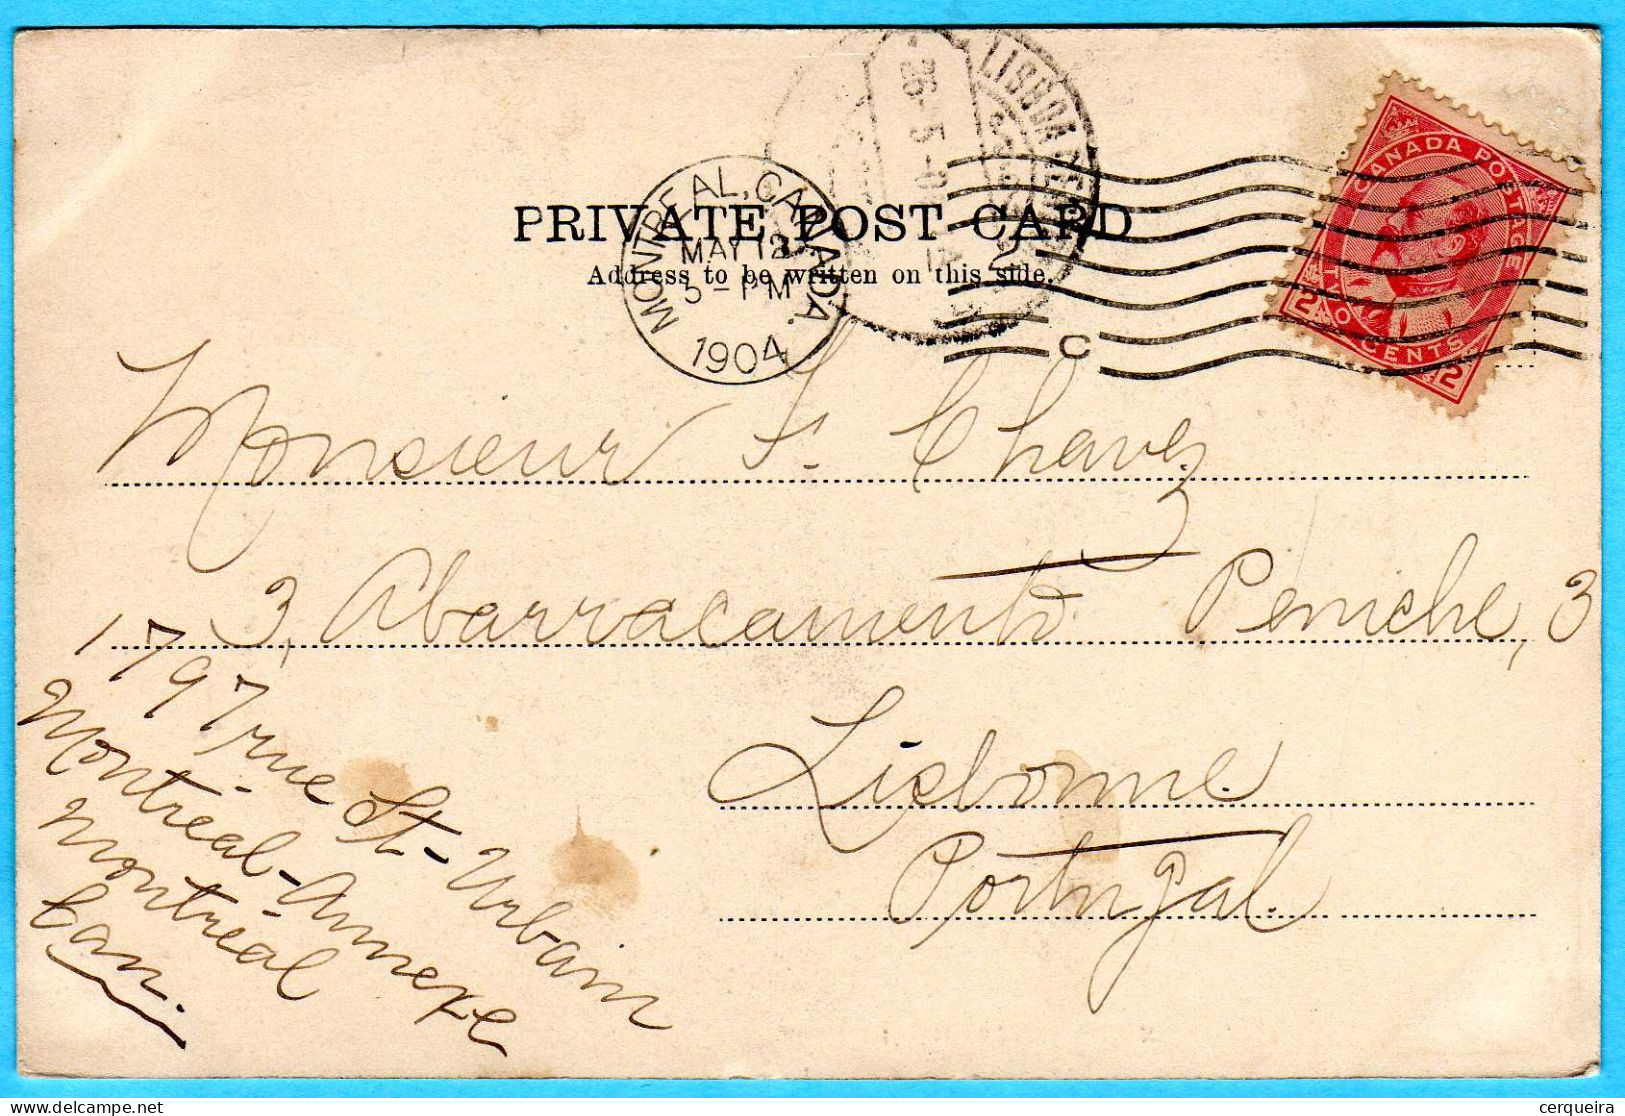 PRIVATE POST CARD
Address to be written on this side.
MONTREAL, CANADA.
MAY 12
5 - PM
1904
LISBOA
26-5
C
CANADA POSTAGE
TWO CENTS
2 2
Monsieur F. Chavez
3, Abarracamento Peniche, 3
Lisbonne
Portugal.
1797 rue St-Urbain
Montréal-Annexe
Montréal
Can.
cerqueira